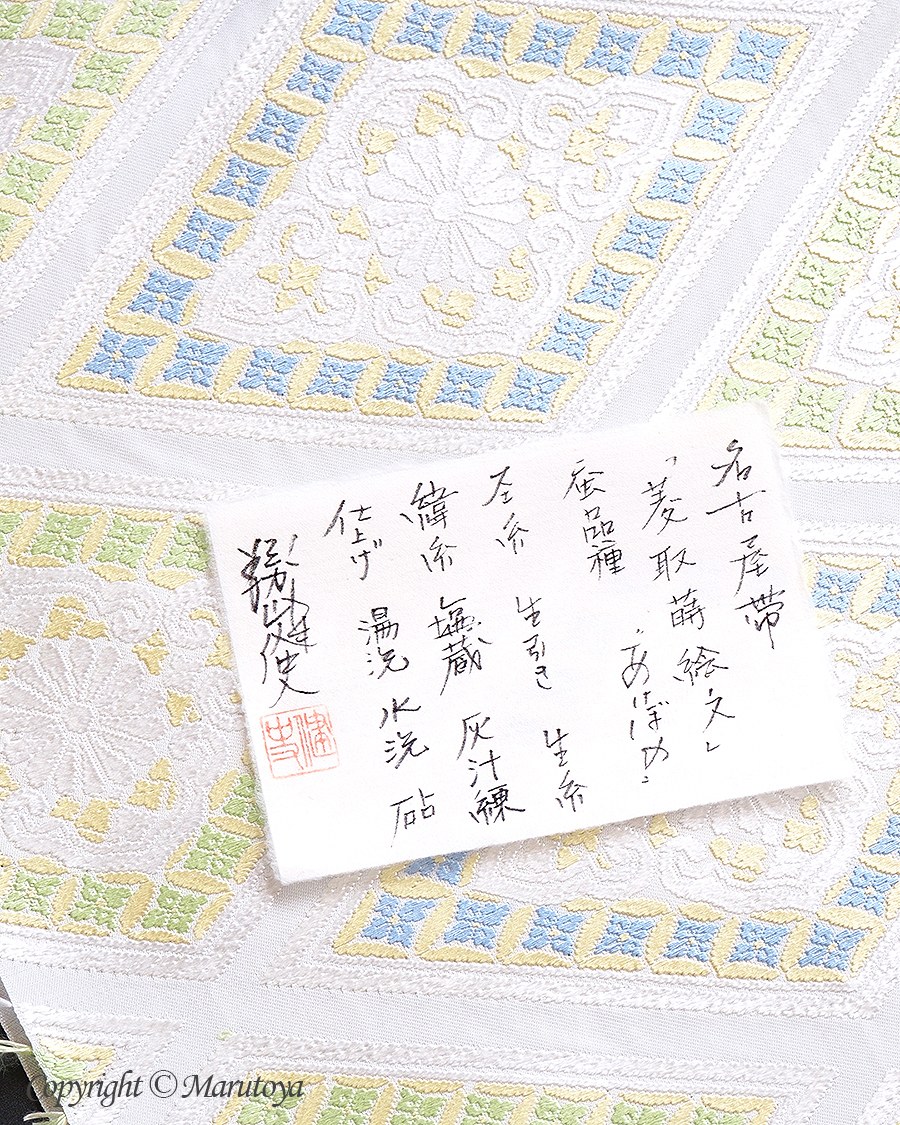 名古屋帯
「菱取蒔絵文」
蚕品種 "あけぼの"
経糸 生引き 生糸
緯糸 塩蔵 灰汁練
仕上げ 湯洗 水洗 砧
勝山健史
健史
Copyright © Marutoya